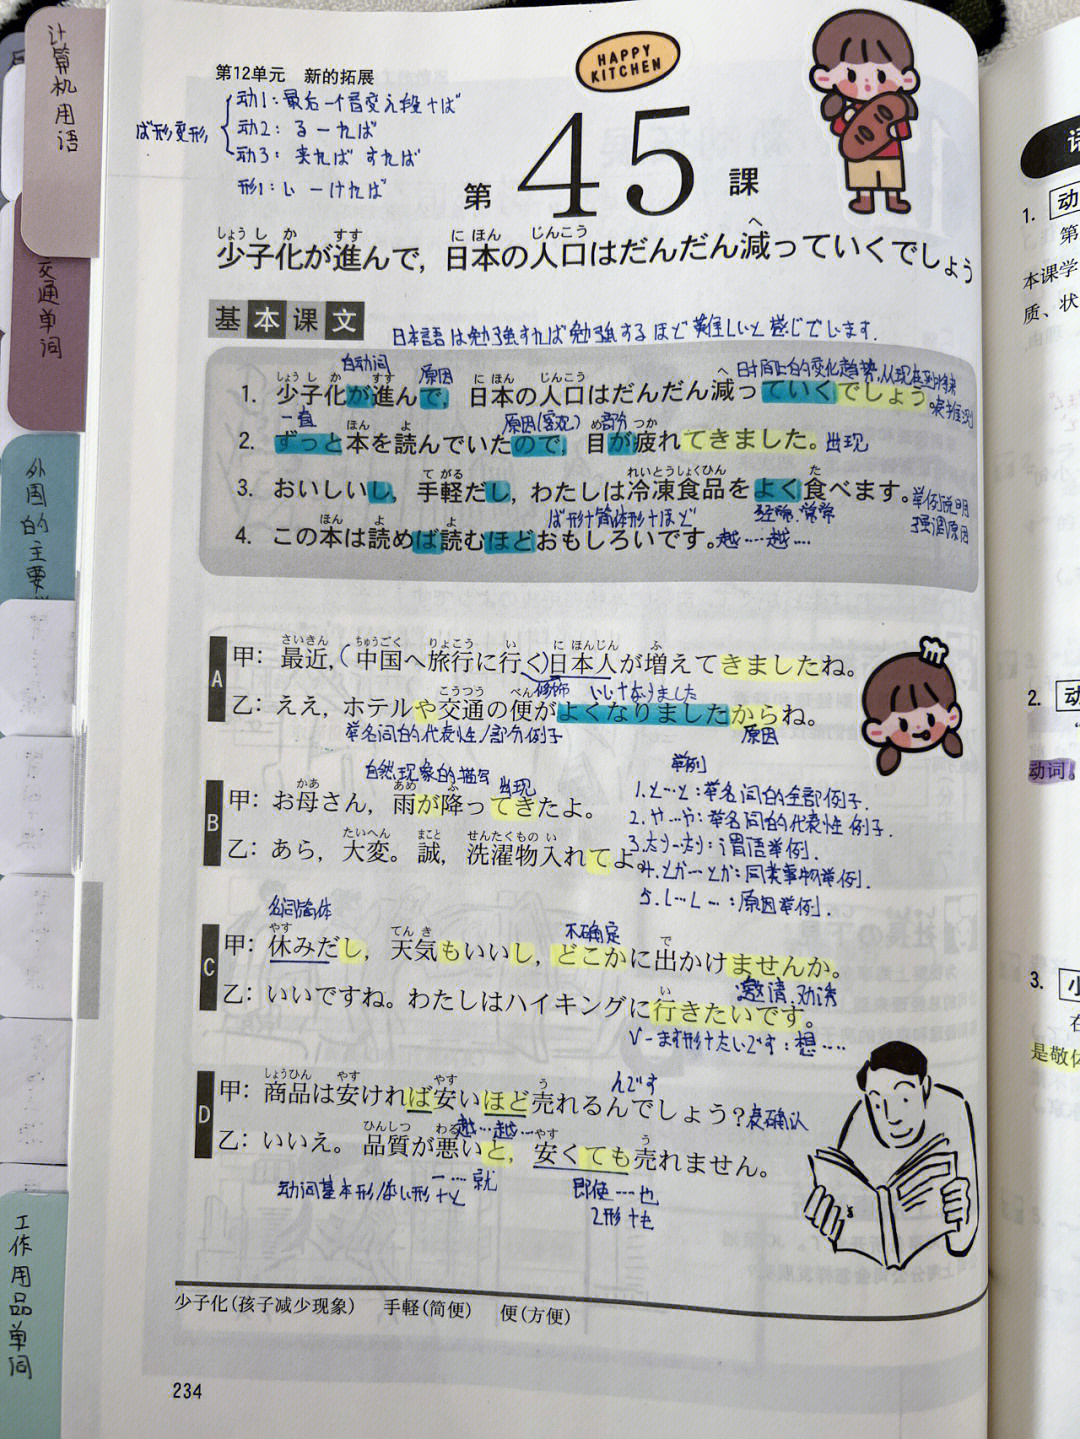 计算机用语
交通单词
外国的主要
工作用品单词
HAPPY
KITCHEN
第12单元 新的拓展
ば形变形
动1：最后一个音变え段+ば
动2：る一れば
动3：来れば すれば
形1：い 一ければ
第45課
しょうしか すす にほん じんこう へ
少子化が進んで，日本の人口はだんだん減っていくでしょう
基本课文
日本語は勉強すれば勉強するほど難しいと感じています.
自动词 原因 时间上的变化趋势,从现在到将来
表推测
しょうしか すす にほん じんこう へ
1. 少子化が進んで，日本の人口はだんだん減っていくでしょう。
一直 原因(客观) 部分
ほん よ め つか
2. ずっと本を読んでいたので，目が疲れてきました。出现
てがる れいとうしょくひん た
3. おいしいし，手軽だし，わたしは冷凍食品をよく食べます。
举例说明
强调原因
ば形+简体形+ほど 经常.常常
ほん よ よ
4. この本は読めば読むほどおもしろいです。越…越…
A
さいきん ちゅうごく りょこう い にほんじん ふ
甲：最近，(中国へ旅行に行く)日本人が増えてきましたね。
修饰 いい+なりました
こうつう べん
乙：ええ，ホテルや交通の便がよくなりましたからね。
举名词的代表性/部分例子 原因
自然现象的描写 出现
B
かあ あめ ふ
甲：お母さん，雨が降ってきたよ。
たいへん まこと せんたくもの い
乙：あら，大変。誠，洗濯物入れてよ。
举例
1.と…と：举名词的全部例子.
2.や…や：举名词的代表性例子.
3.たり…たり：谓语举例.
4.とか…とか：同类事物举例.
5.し…し…：原因举例.
名词简体 不确定
C
やす てんき で
甲：休みだし，天気もいいし，どこかに出かけませんか。
邀请,劝诱
い
乙：いいですね。わたしはハイキングに行きたいです。
V-ます形+たいです：想…
D
しょうひん やす やす う
甲：商品は安ければ安いほど売れるんでしょう？
んです
表确认
越…越…
ひんしつ わる やす う
乙：いいえ。品質が悪いと，安くても売れません。
动词基本形/い形+と 一…就
即使…也
て形+も
少子化(孩子减少现象) 手軽(简便) 便(方便)
234
1. 动
第
本课学
质、状
2. 动
动词。
3. 小
在
是敬体